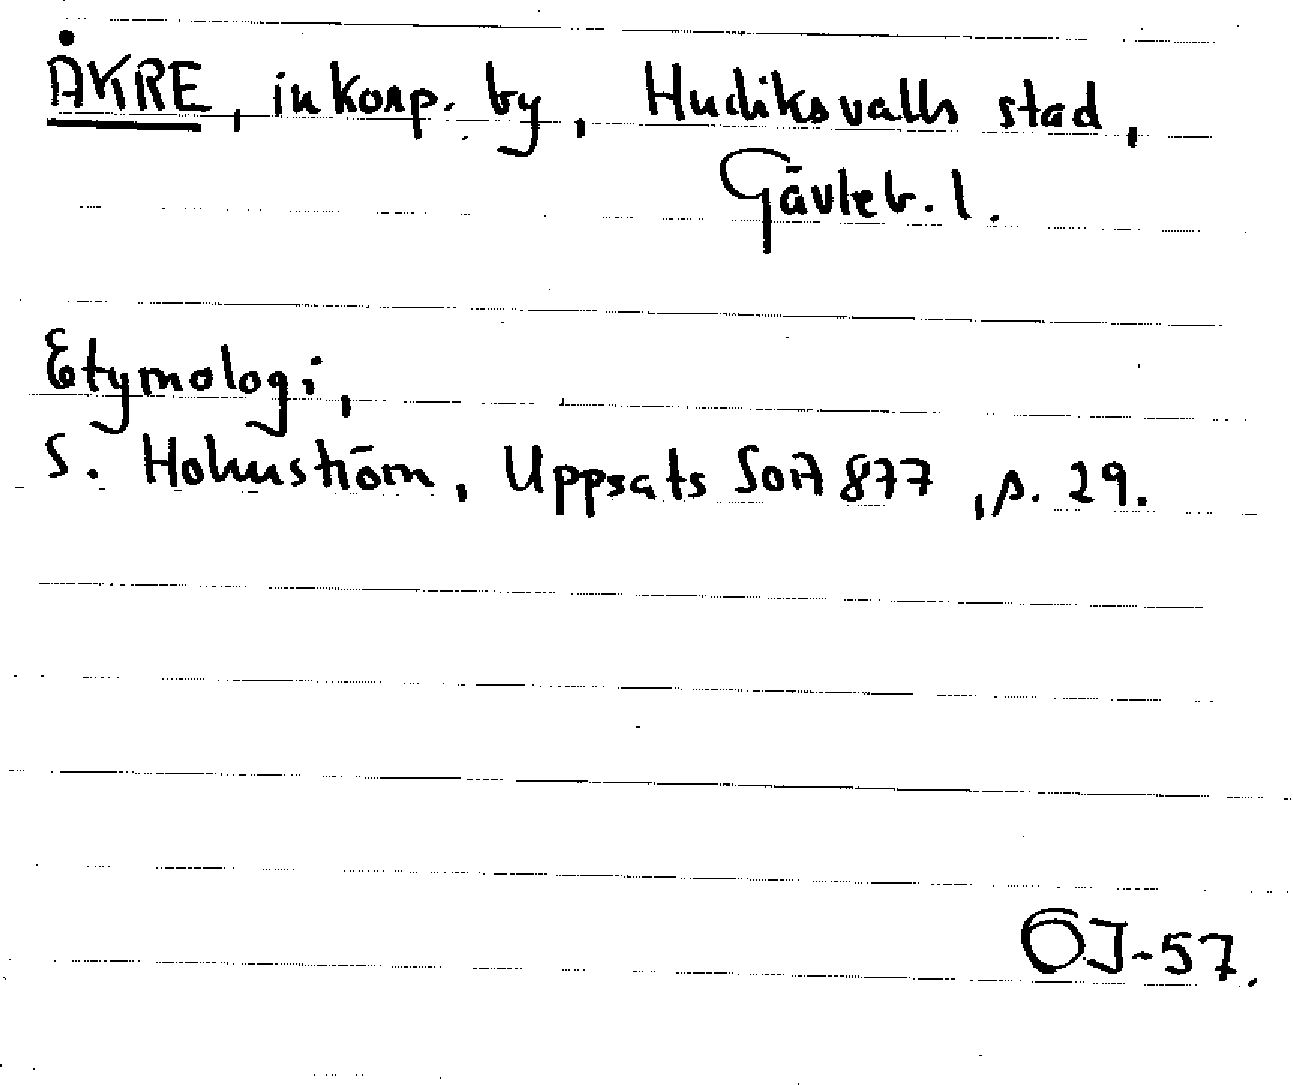 ÅKRE, inkorp. by, Hudiksvalls stad,
Gävleb. l.
Etymologi,
S. Holmström, Uppsats SOA 877, s. 29.
OJ-57.